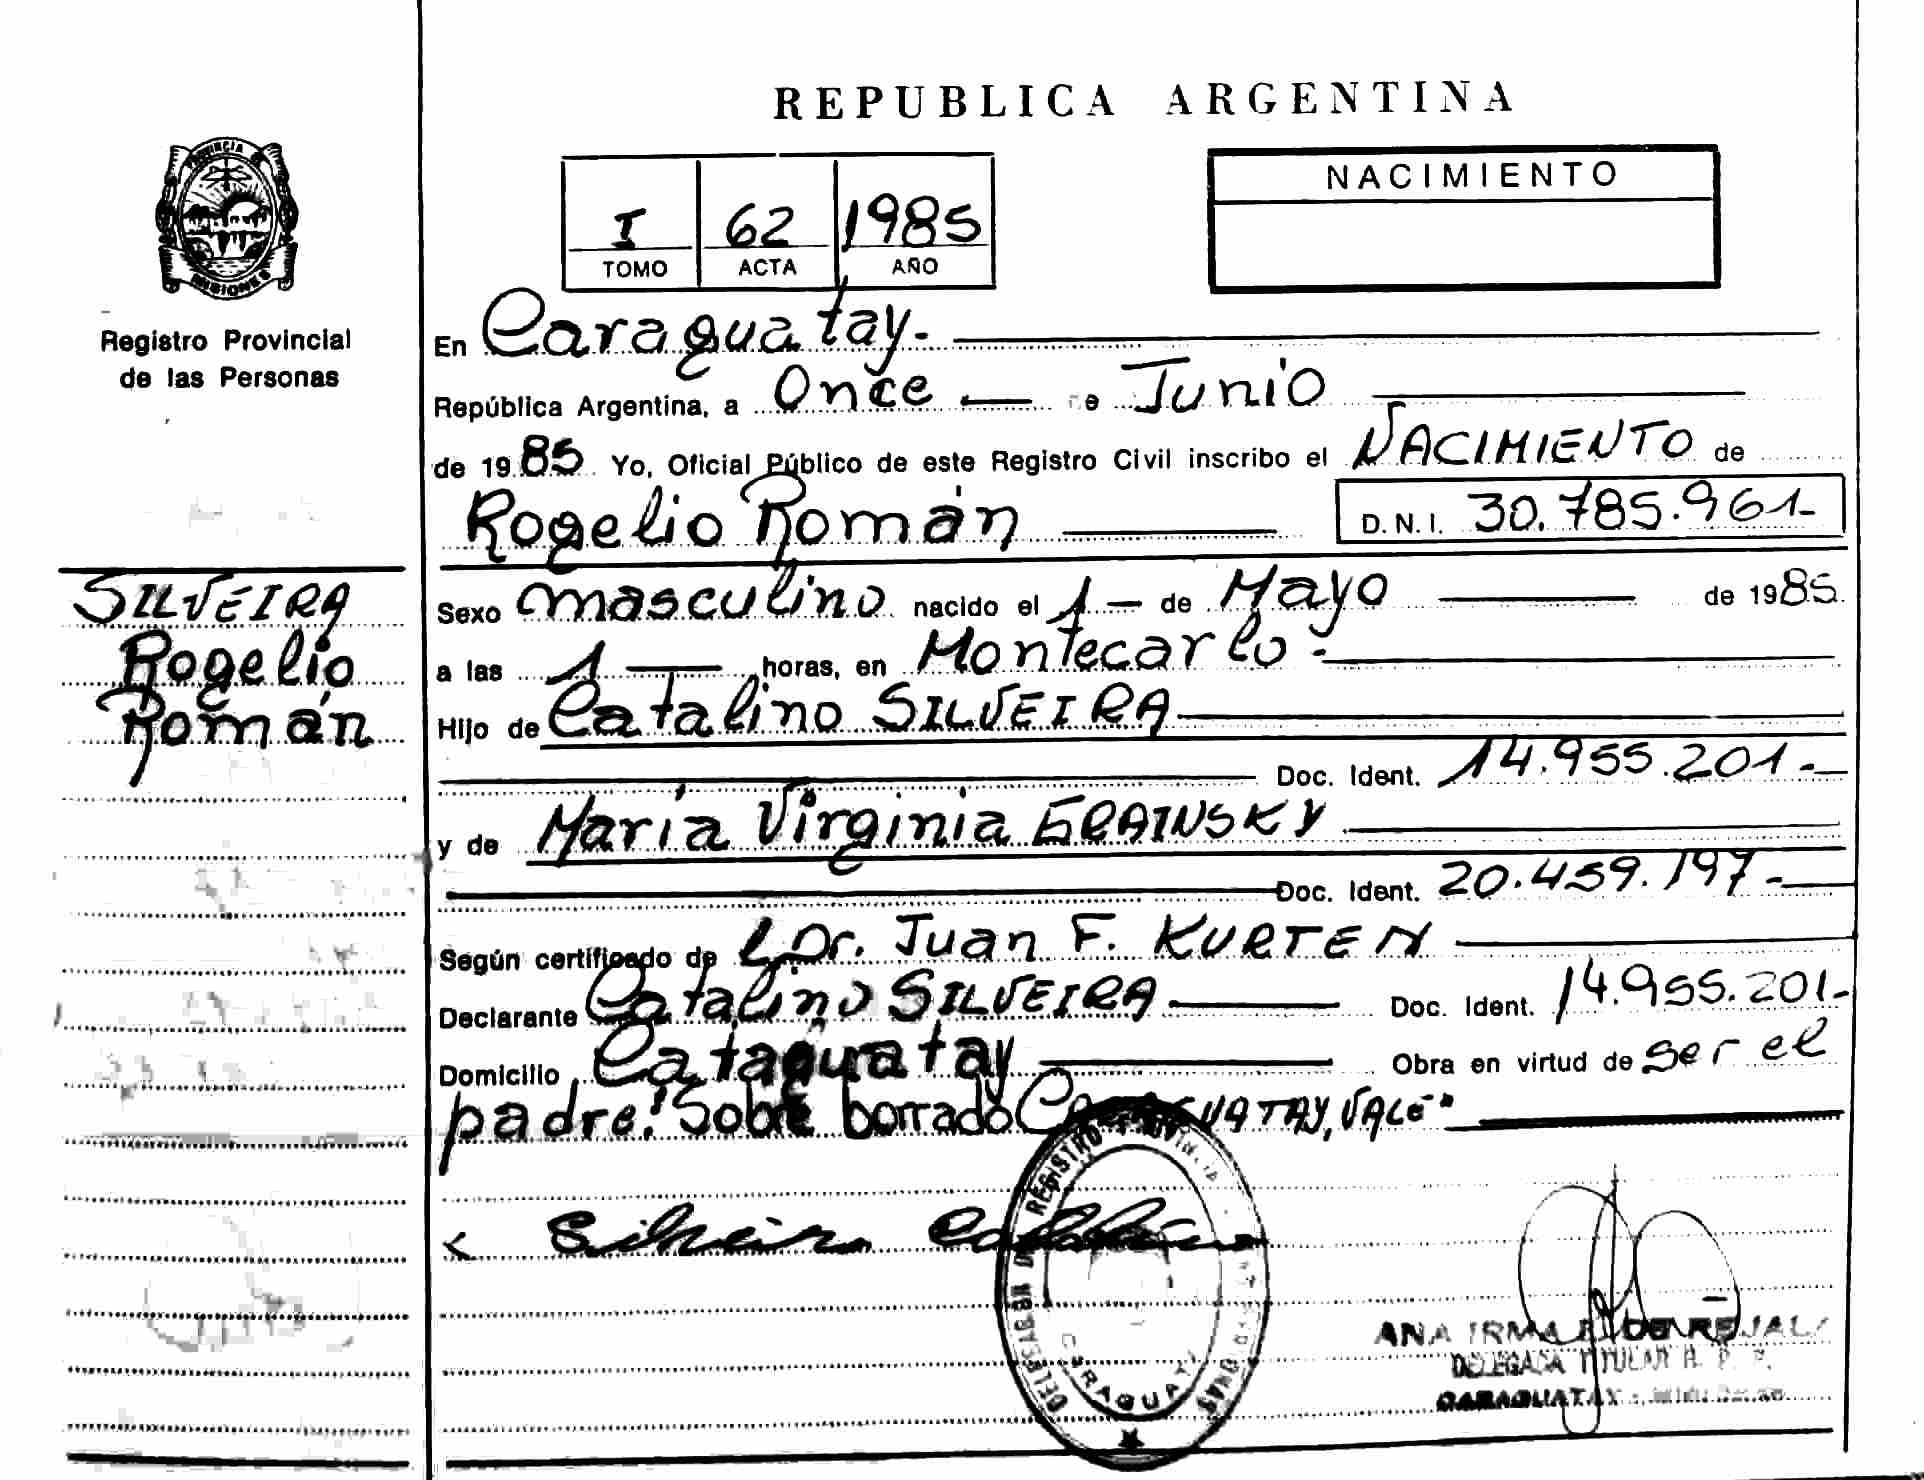 REPUBLICA ARGENTINA
PROVINCIA DE
MISIONES
Registro Provincial
de las Personas
I 62 1985
TOMO ACTA AÑO
NACIMIENTO
En Caraguatay.
República Argentina, a Once de Junio
de 1985 Yo, Oficial Público de este Registro Civil inscribo el NACIMIENTO de
Rogelio Román D.N.I. 30.785.961-
SILVEIRA
Rogelio
Román
Sexo masculino nacido el 1 - de Mayo de 1985
a las 1 horas, en Montecarlo.
Hijo de Catalino SILVEIRA
Doc. Ident. 14.955.201.-
y de María Virginia GRAINSKY
Doc. Ident. 20.459.197-
Según certificado del Dr. Juan F. KURTEN
Declarante Catalino SILVEIRA Doc. Ident. 14.955.201-
Domicilio Cataguatay Obra en virtud de ser el
padre: Sobre borrado CARAGUATAY, VALE"
Silveira Catalino
DELEGACION DEL REGISTRO
CARAGUATAY
ANA IRMA DE
DELEGADA TITULAR R. P. P.
CARAGUATAY